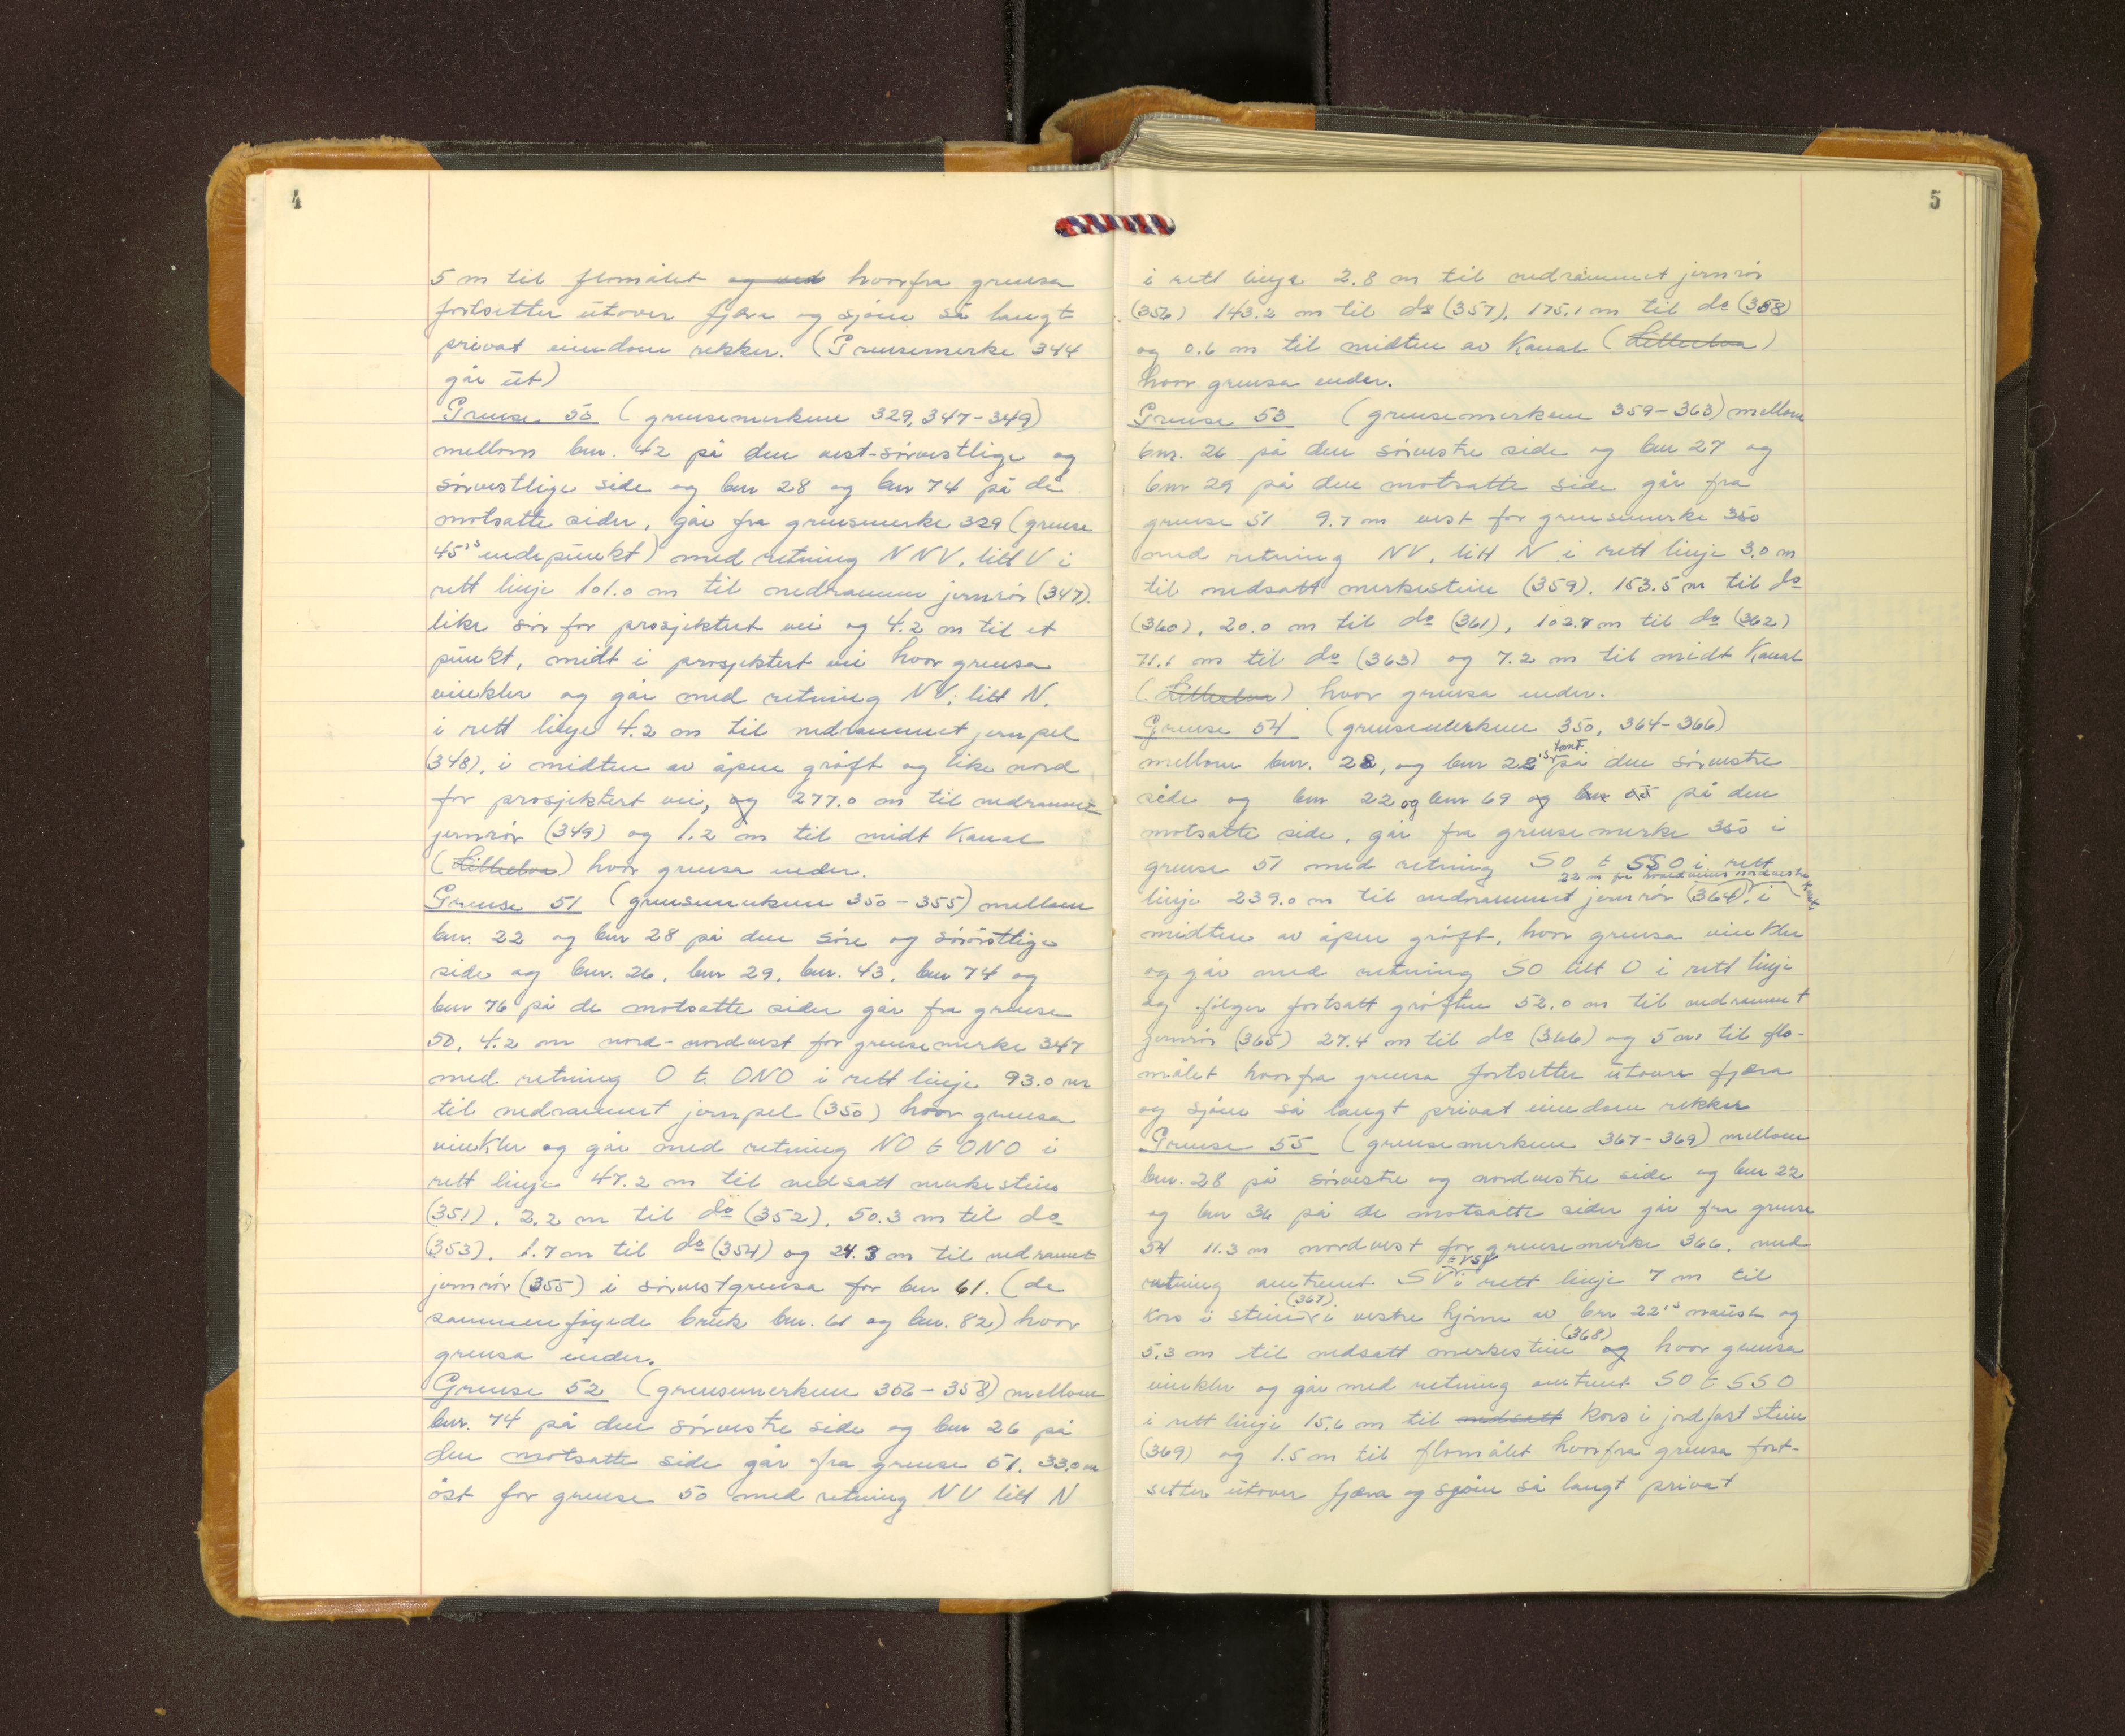 4
5 m til flomålet og ved hvorfra grensa
fortsetter utover fjæra og sjøen så langt
privat eiendom rekker. (Grensemerke 344
går ut)
Grense 50 (grensemerkene 329, 347-349)
mellom bnr. 42 på den vest-sørvestlige og
sørvestlige side og bnr 28 og bnr 74 på de
motsatte sider, går fra grensemerke 329 (grense
45's endepunkt) med retning NNV, litt V i
rett linje 101.0 m til nedrammet jernrør (347).
like sør for prosjektert vei og 4.2 m til et
punkt, midt i prosjektert vei hvor grensa
vinkler og går med retning NV, litt N.
i rett linje 4.2 m til nedrammet jernpel
(348), i midten av åpen grøft og like nord
for prosjektert vei, og 277.0 m til nedrammet
jernrør (349) og 1.2 m til midt Kanal
(Lilleelva) hvor grensa ender.
Grense 51 (grensemerkene 350-355) mellom
bnr. 22 og bnr 28 på den søre og sørøstlige
side og bnr. 26, bnr 29, bnr. 43, bnr 74 og
bnr 76 på de motsatte sider går fra grense
50, 4.2 m nord-nordvest for grensemerke 347
med retning O t. ONO i rett linje 93.0 m
til nedrammet jernpel (350) hvor grensa
vinkler og går med retning NO t ONO i
rett linje 47.2 m til nedsatt merkestein
(351), 2.2 m til do (352), 50.3 m til do
(353), 1.7 m til do (354) og 24.3 m til nedrammet
jernrør (355) i sørvestgrensa for bnr 61. (de
sammenføyede bruk bnr. 61 og bnr. 82) hvor
grensa ender.
Grense 52 (grensemerkene 356-358) mellom
bnr. 74 på den sørvestre side og bnr 26 på
den motsatte side går fra grense 51, 33.0 m
øst for grense 50 med retning NV litt N
5
i rett linje 2.8 m til nedrammet jernrør
(356) 143.2 m til do (357), 175.1 m til do (358)
og 0.6 m til midten av Kanal (Lilleelva)
hvor grensa ender.
Grense 53 (grensemerkene 359-363) mellom
bnr. 26 på den sørvestre side og bnr 27 og
bnr 29 på den motsatte side går fra
grense 51 9.7 m vest for grensemerke 350
med retning NV, litt N i rett linje 3.0 m
til nedsatt merkestein (359), 153.5 m til do
(360), 20.0 m til do (361), 102.7 m til do (362)
71.1 m til do (363) og 7.2 m til midt Kanal
(Lilleelva) hvor grensa ender.
Grense 54 (grensemerkene 350, 364-366)
mellom bnr. 28, og bnr 28's tomt på den sørvestre
side og bnr 22 og bnr 69 og bnr på den
motsatte side, går fra grensemerke 350 i
grense 51 med retning SO t SSO i rett
linje 239.0 m til nedrammet jernrør (364), 22 m fra i
midten av åpen grøft, hvor grensa vinkler
og går med retning SO litt O i rett linje
og følger fortsatt grøften 52.0 m til nedrammet
jernrør (365) 27.4 m til do (366) og 5 m til flo-
målet hvorfra grensa fortsetter utover fjæra
og sjøen så langt privat eiendom rekker
Grense 55 (grensemerkene 367-369) mellom
bnr. 28 på sørvestre og nordvestre side og bnr 22
og bnr 36 på de motsatte sider går fra grense
54 11.3 m nordvest for grensemerke 366, med
retning omtrent SV t VSV i rett linje 7 m til
kors i stein (367) i vestre hjørne av bnr 22's naust og
5.3 m til nedsatt merkestein (368) og hvor grensa
vinkler og går med retning omtrent SO t SSO
i rett linje 15.6 m til nedsatt kors i jordfast stein
(369) og 1.5 m til flomålet hvorfra grensa fort-
setter utover fjæra og sjøen så langt privat